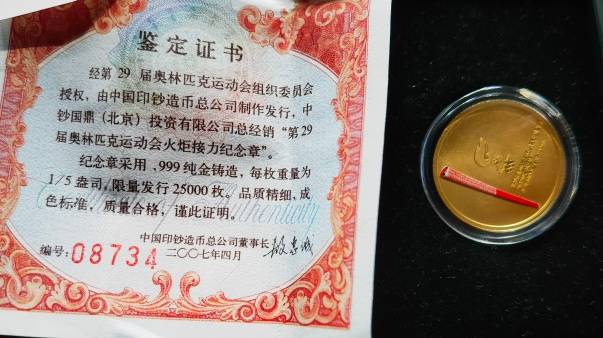 鉴定证书
经第29届奥林匹克运动会组织委员会
授权，由中国印钞造币总公司制作发行，中
钞国鼎（北京）投资有限公司总经销“第29
届奥林匹克运动会火炬接力纪念章”。
纪念章采用.999纯金铸造，每枚重量为
1/5盎司，限量发行25000枚。品质精细，成
色标准，质量合格，谨此证明。
中国印钞造币总公司董事长
二〇〇七年四月
编号:08734